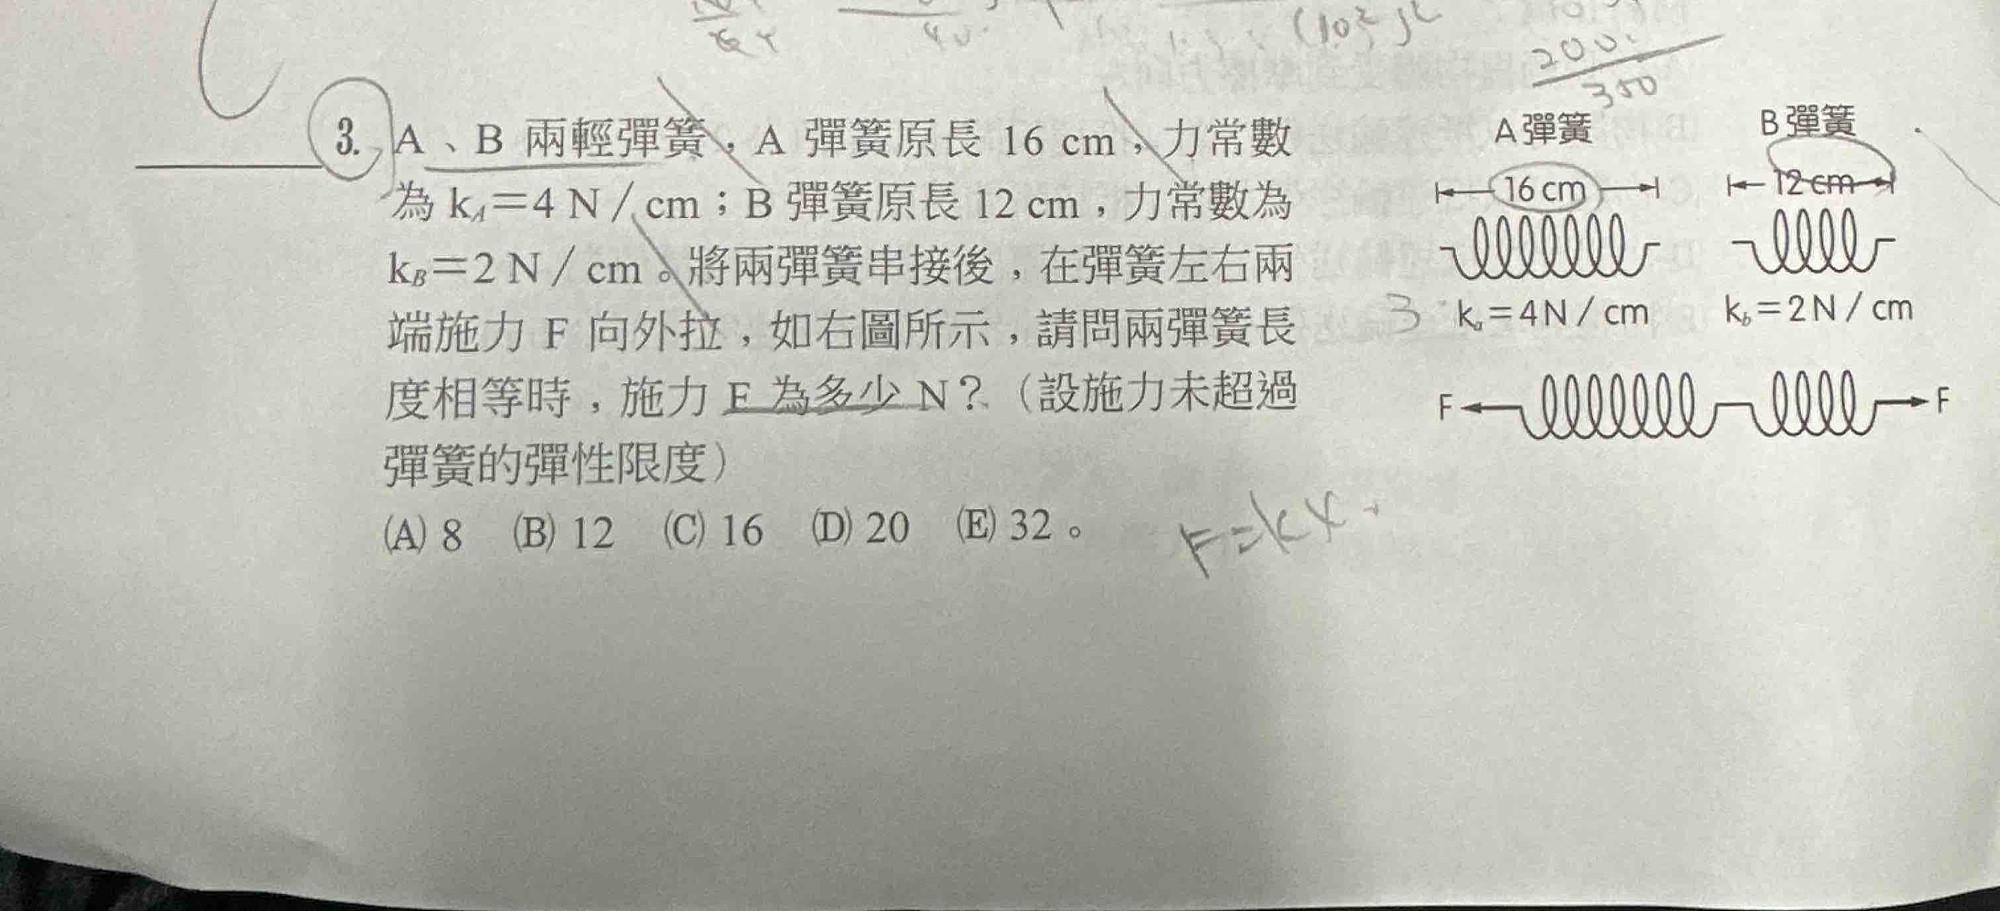 (10²)²
200.
350
3. A、B 兩輕彈簧，A 彈簧原長 16 cm、力常數
為 k_A＝4 N / cm；B 彈簧原長 12 cm，力常數為
k_B＝2 N / cm。將兩彈簧串接後，在彈簧左右兩
端施力 F 向外拉，如右圖所示，請問兩彈簧長
度相等時，施力 F 為多少 N？（設施力未超過
彈簧的彈性限度）
(A) 8 (B) 12 (C) 16 (D) 20 (E) 32。
F=kx
A彈簧 B彈簧
16 cm 12 cm
3
kₐ＝4N / cm k_b＝2N / cm
F F